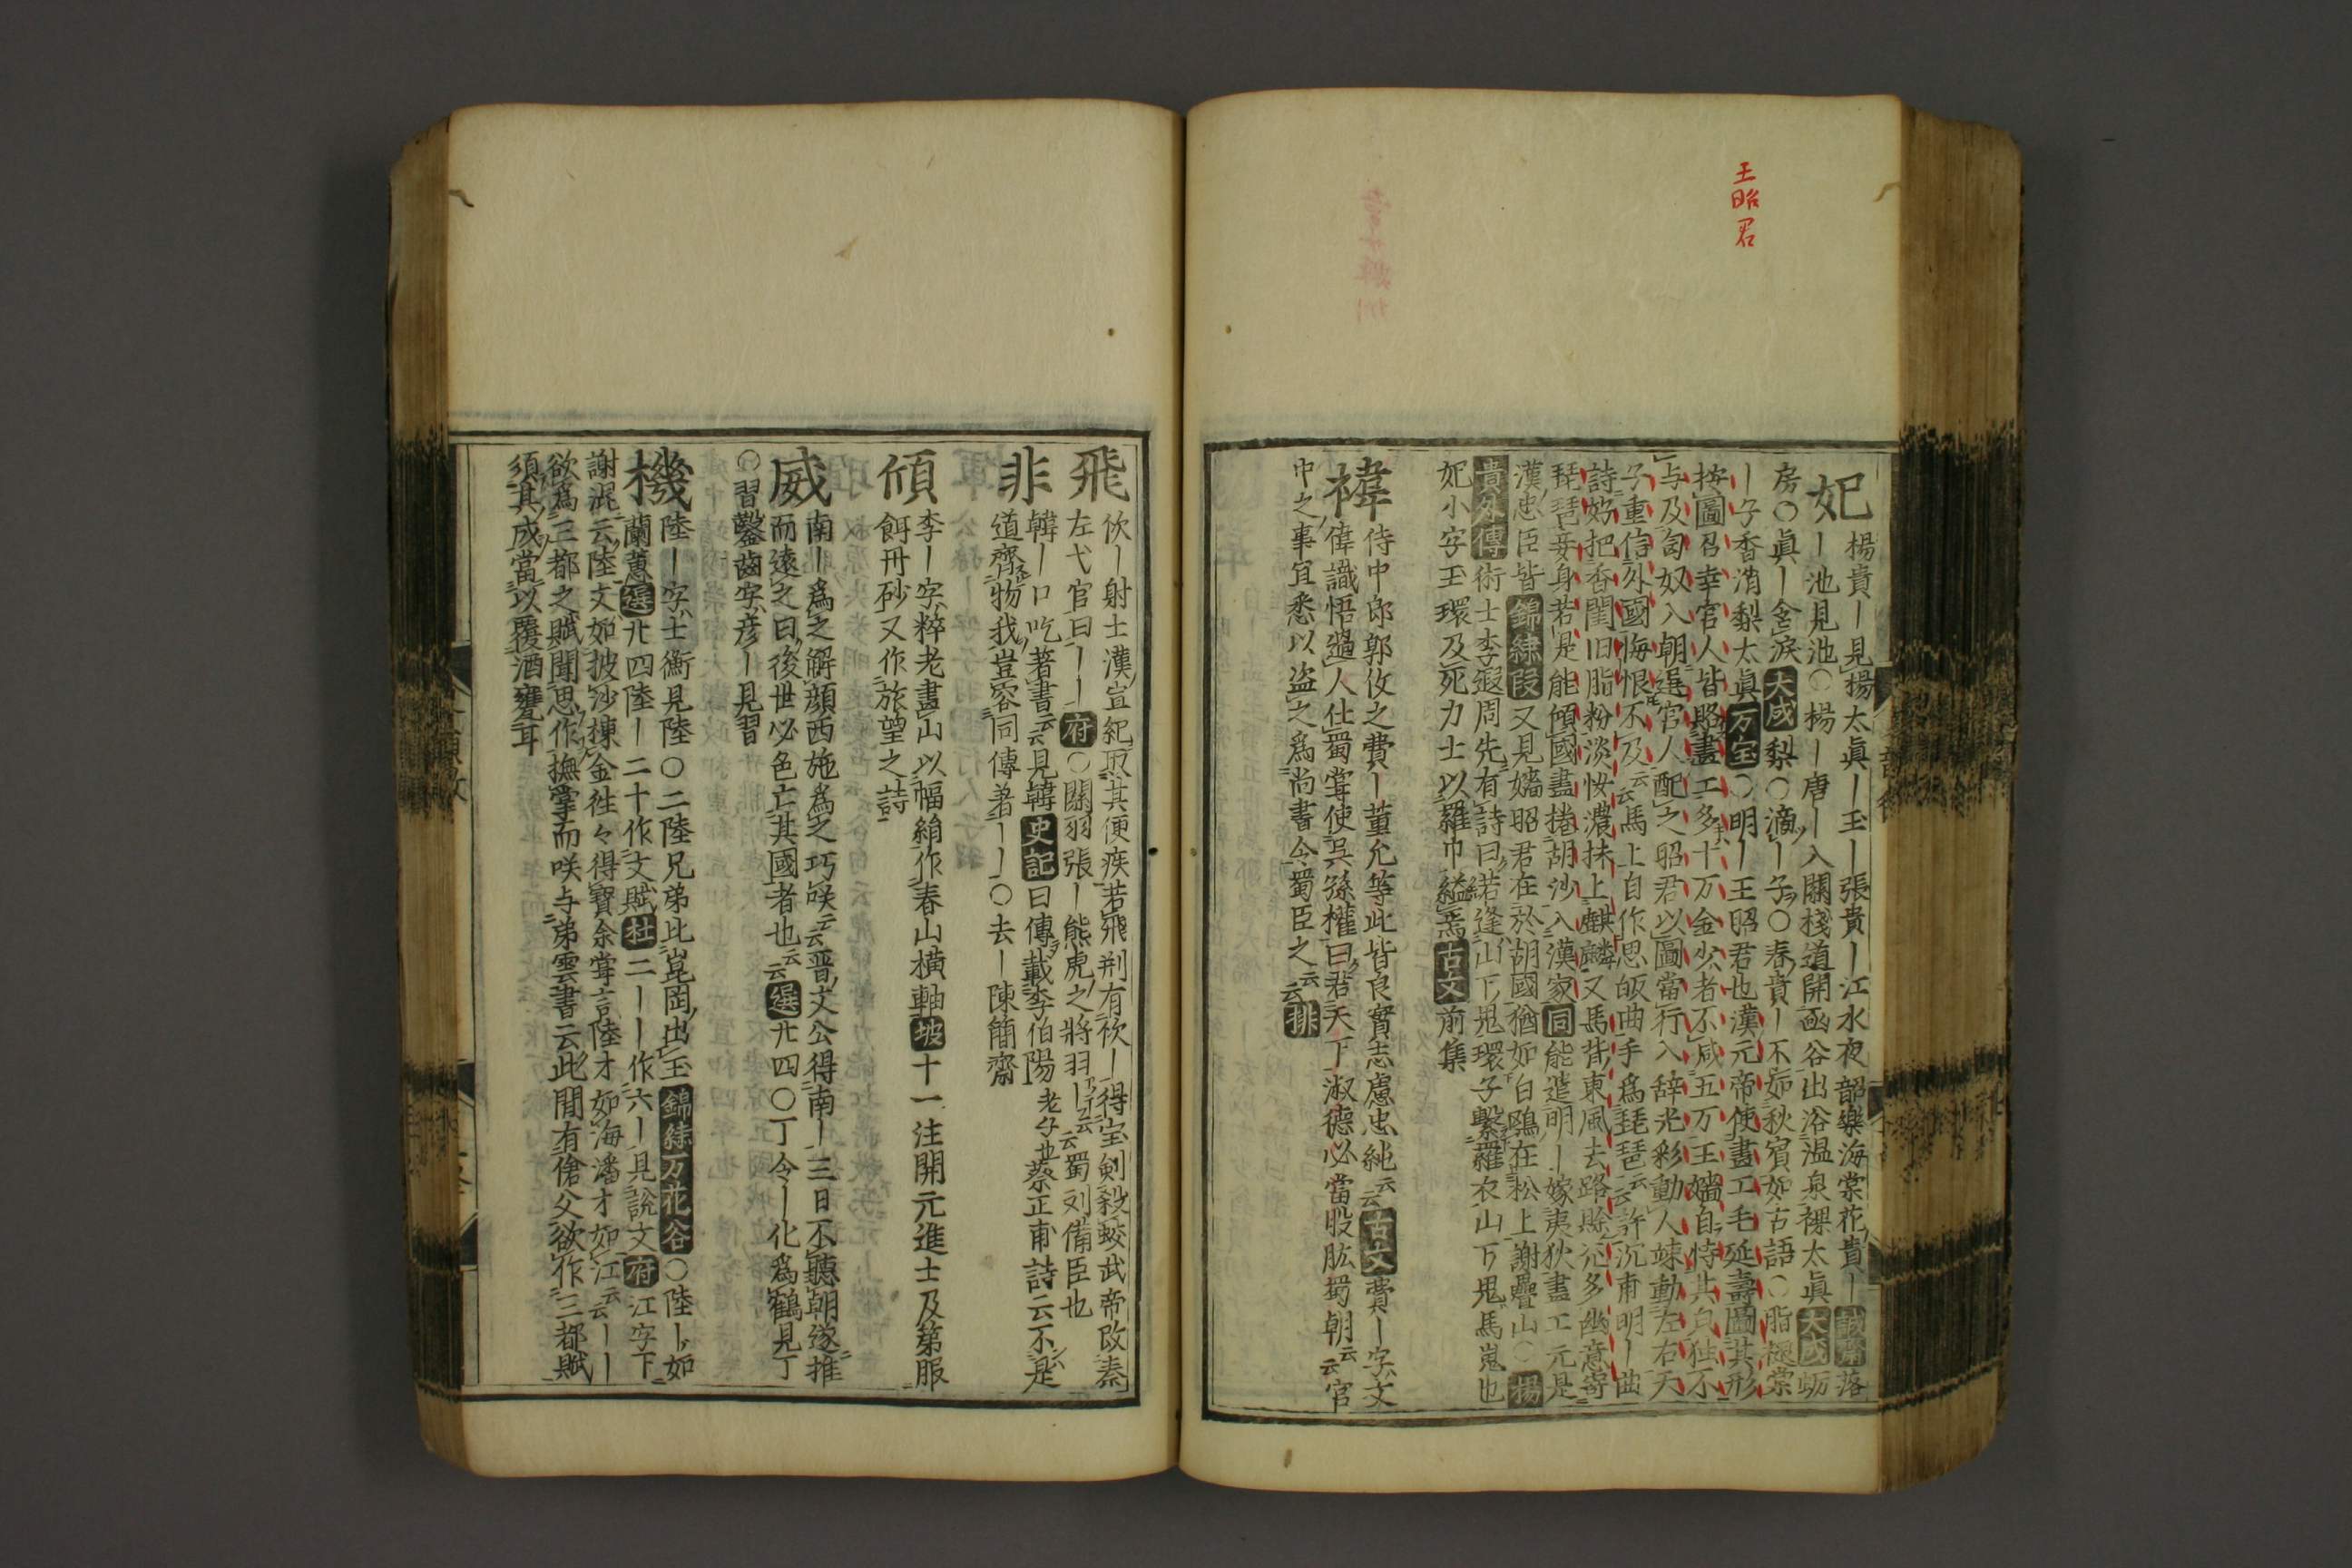 王昭君
妃楊貴ー見楊太眞ー玉ー張貴ー江水夜韶樂海棠花貴ー誠齋落
ー池見池○楊ー唐ー入關棧道開函谷出浴溫泉裸太眞大成蛎
房○眞ー含淚大成梨○滴ー子○春賁ー不如秋賓如古語○脂棍棠
ー子香消梨太眞万宝○明ー王昭君也漢元帝使畫工毛延壽圖其形
按圖召幸宮人皆賂畫工多十万金少者不咸五万王嬙自恃其皃独不
与及匈奴入朝選宮人配之昭君以圖當行入辞光彩動人竦動左右天
子重信外國悔恨不及云云馬上自作思皈曲手爲琵琶云云許沉甫明ー曲
詩好把香閨旧脂粉淡妝濃抹上麒麟又馬背東風去路賒亢多幽意寄
琵琶妾身若是能傾國畫捲胡沙入漢家同能遣明ー嫁夷狄畫工元是
漢忠臣皆錦綉段又見嬙昭君在於胡國猶如白鷗在松上謝疊山○楊
貴外傳術士李遐周先有詩曰若逢山下鬼環子繫羅衣山下鬼馬嵬也
妃小字玉環及死力士以羅巾縊焉古文前集
禕侍中郎郭攸之費ー董允等此皆良實志慮忠純云云古文費ー字文
偉識悟過人仕蜀嘗使吳孫權曰君天下淑德必當股肱蜀朝云云官
中之事冝悉以咨之爲尚書令蜀臣之云云排
飛佽ー射士漢宣紀取其便疾若飛荊有佽ー得宝剣殺蛟武帝改秦
左弋官曰ーー府○關羽張ー熊虎之將羽ー云云蜀刘備臣也
非韓ー口吃著書云云見韓史記曰傳載李伯陽老子也蔡正甫詩云不是
道齊物我豈容同傳著ーー○去ー陳簡齋
頎李ー字粹老畫山以幅絹作春山橫軸坡十一注開元進士及第服
餌丹砂又作旅望之詩
威南ー爲之解顔西施爲之巧咲云云晋文公得南ー三日不聽朝遂推
而遠之曰後世必色亡其國者也云云選卄四○丁令ー化爲鶴見丁
○習鑿齒字彦ー見習
機陸ー字士衡見陸○二陸兄弟比崑岡出玉錦綉万花谷○陸ー如
蘭蕙選卄四陸ー二十作文賦杜二ーー作六ー見說文府江字下
謝混云陸文如披沙棟金徃々得寶余嘗言陸才如海潘才如江云云ーー
欲爲三都之賦聞思作撫掌而咲与弟雲書云此間有傖父欲作三都賦
須其成當以覆酒甕耳